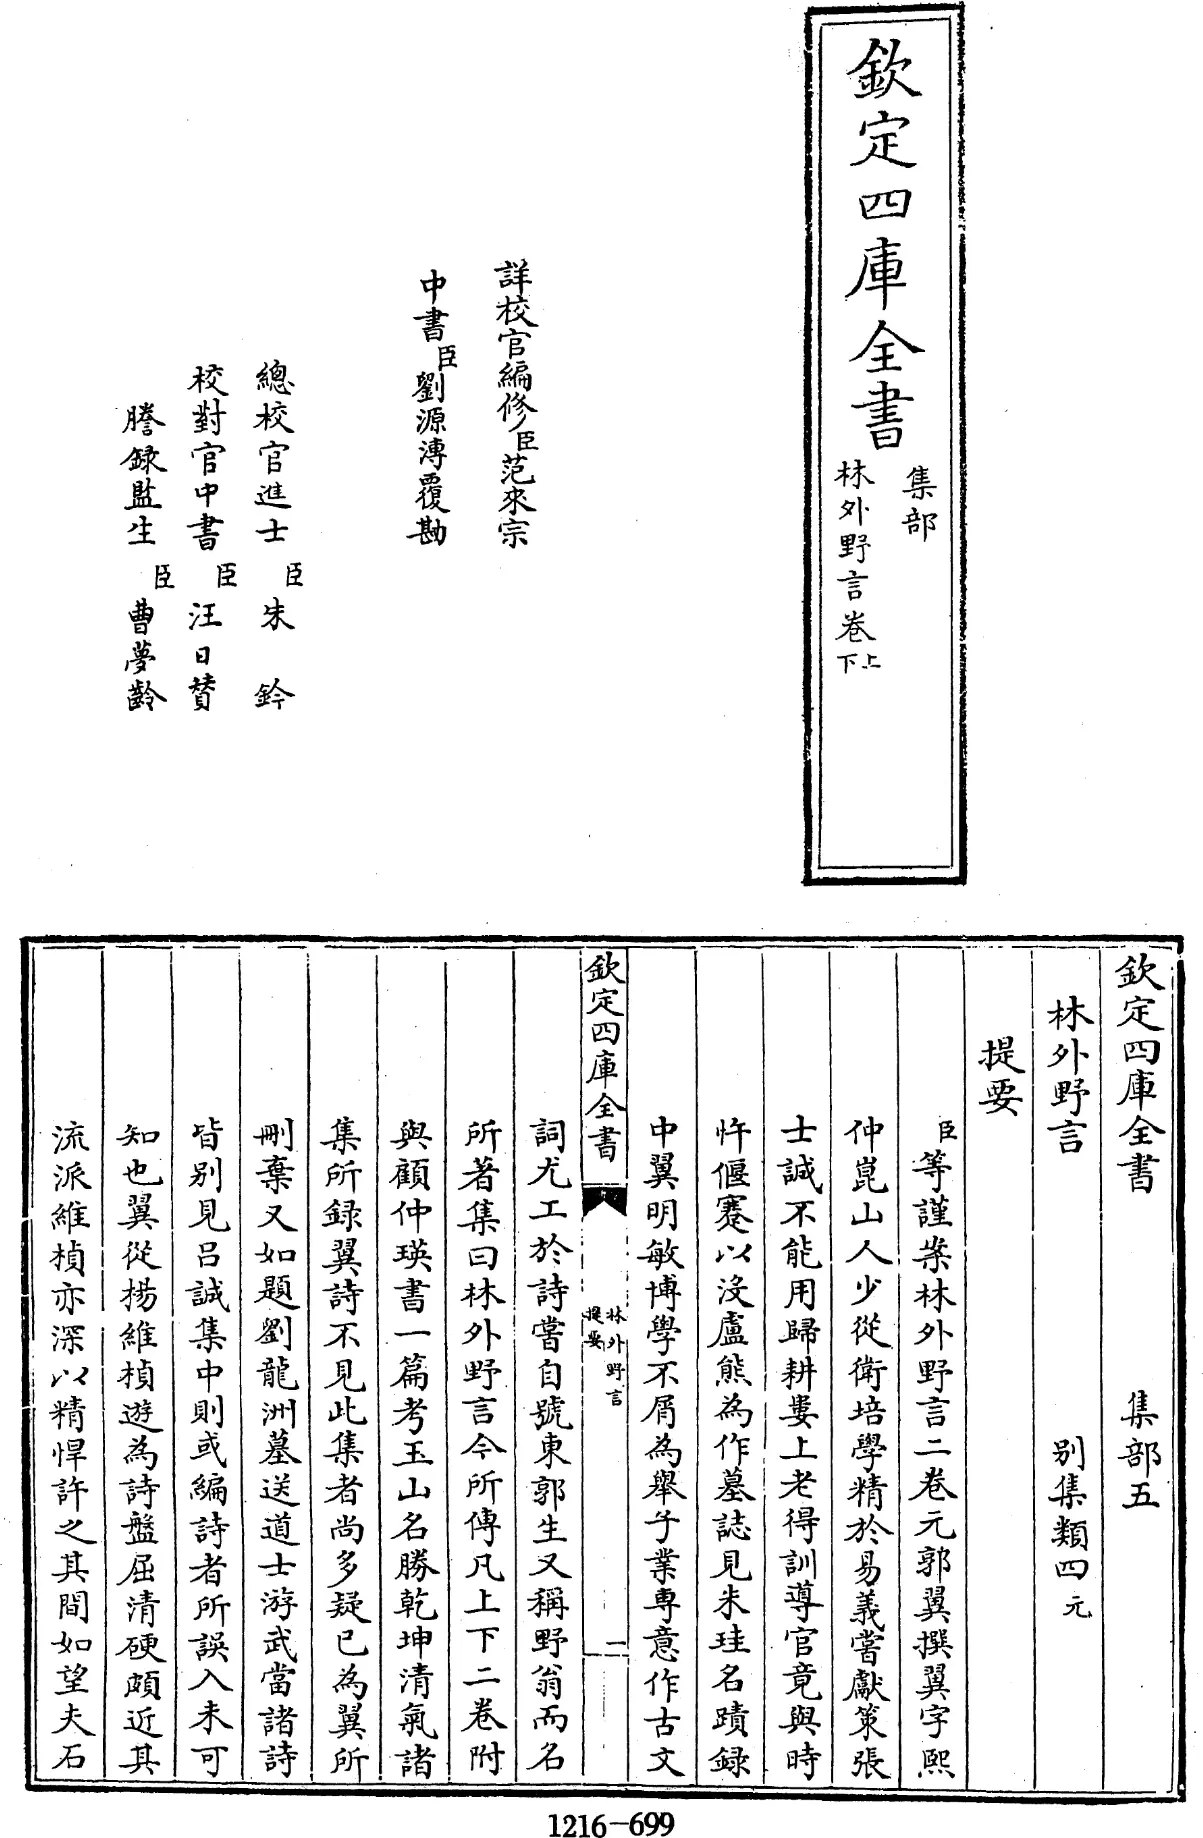 欽定四庫全書
集部
林外野言卷上下
詳校官編修臣范來宗
中書臣劉源溥覆勘
總校官進士臣朱鈐
校對官中書臣汪日贊
謄録監生臣曹夢齡
欽定四庫全書 集部五
林外野言 别集類四元
提要
臣等謹案林外野言二卷元郭翼撰翼字熙
仲崑山人少從衛培學精於易義嘗獻策張
士誠不能用歸耕婁上老得訓導官竟與時
忤偃蹇以沒盧熊為作墓誌見朱珪名蹟録
中翼明敏博學不屑為舉子業専意作古文
欽定四庫全書
林外野言
提要
二
詞尤工於詩嘗自號東郭生又稱野翁而名
所著集曰林外野言今所傳凡上下二卷附
與顧仲瑛書一篇考玉山名勝乾坤清氣諸
集所録翼詩不見此集者尚多疑已為翼所
刪棄又如題劉龍洲墓送道士游武當諸詩
皆别見吕誠集中則或編詩者所誤入未可
知也翼從楊維楨遊為詩盤屈清硬頗近其
流派維楨亦深以精悍許之其間如望夫石
1216-699